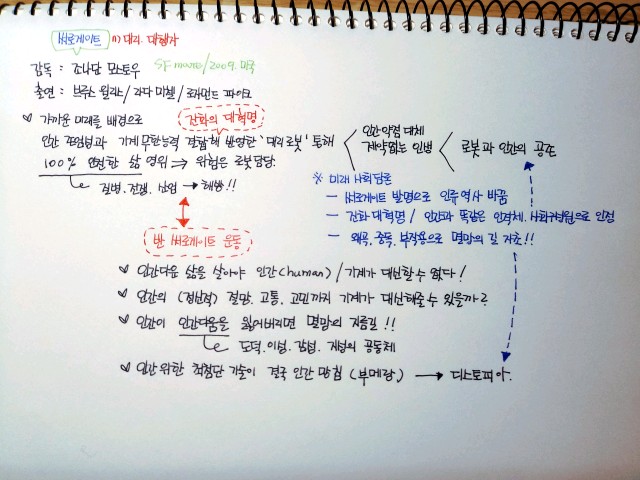 써로게이트 n) 대리. 대행자
감독 : 조나단 모스토우 SF movie/2009. 미국
출연 : 브루스 윌리스/라다 미첼/로자먼드 파이크
가까운 미래를 배경으로 진화의 대혁명
인간 존엄성과 기계 무한능력 결합해 발명한 '대리로봇' 통해
100% 안전한 삶 영위 ⇒ 위험은 로봇담당
질병. 전쟁. 살인 → 해방!!
인간약점 대체
제약없는 인생
로봇과 인간의 공존
※ 미래 사회담론
- 써로게이트 발명으로 인류 역사 바꿈
- 진화 대혁명 / 인간과 똑같은 인격체. 사회구성원으로 인정
- 왜곡, 중독, 부작용으로 멸망의 길 자초!!
반 써로게이트 운동
인간다운 삶을 살아야 인간(human) / 기계가 대신할수 없다!
인간의 (정신적) 절망, 고통, 고민까지 기계가 대신해줄수 있을까?
인간이 인간다움을 잃어버리면 멸망의 지름길!!
도덕. 이성. 감성. 지성의 공동체
인간 위한 최첨단 기술이 결국 인간 망침 (부메랑) → 디스토피아.